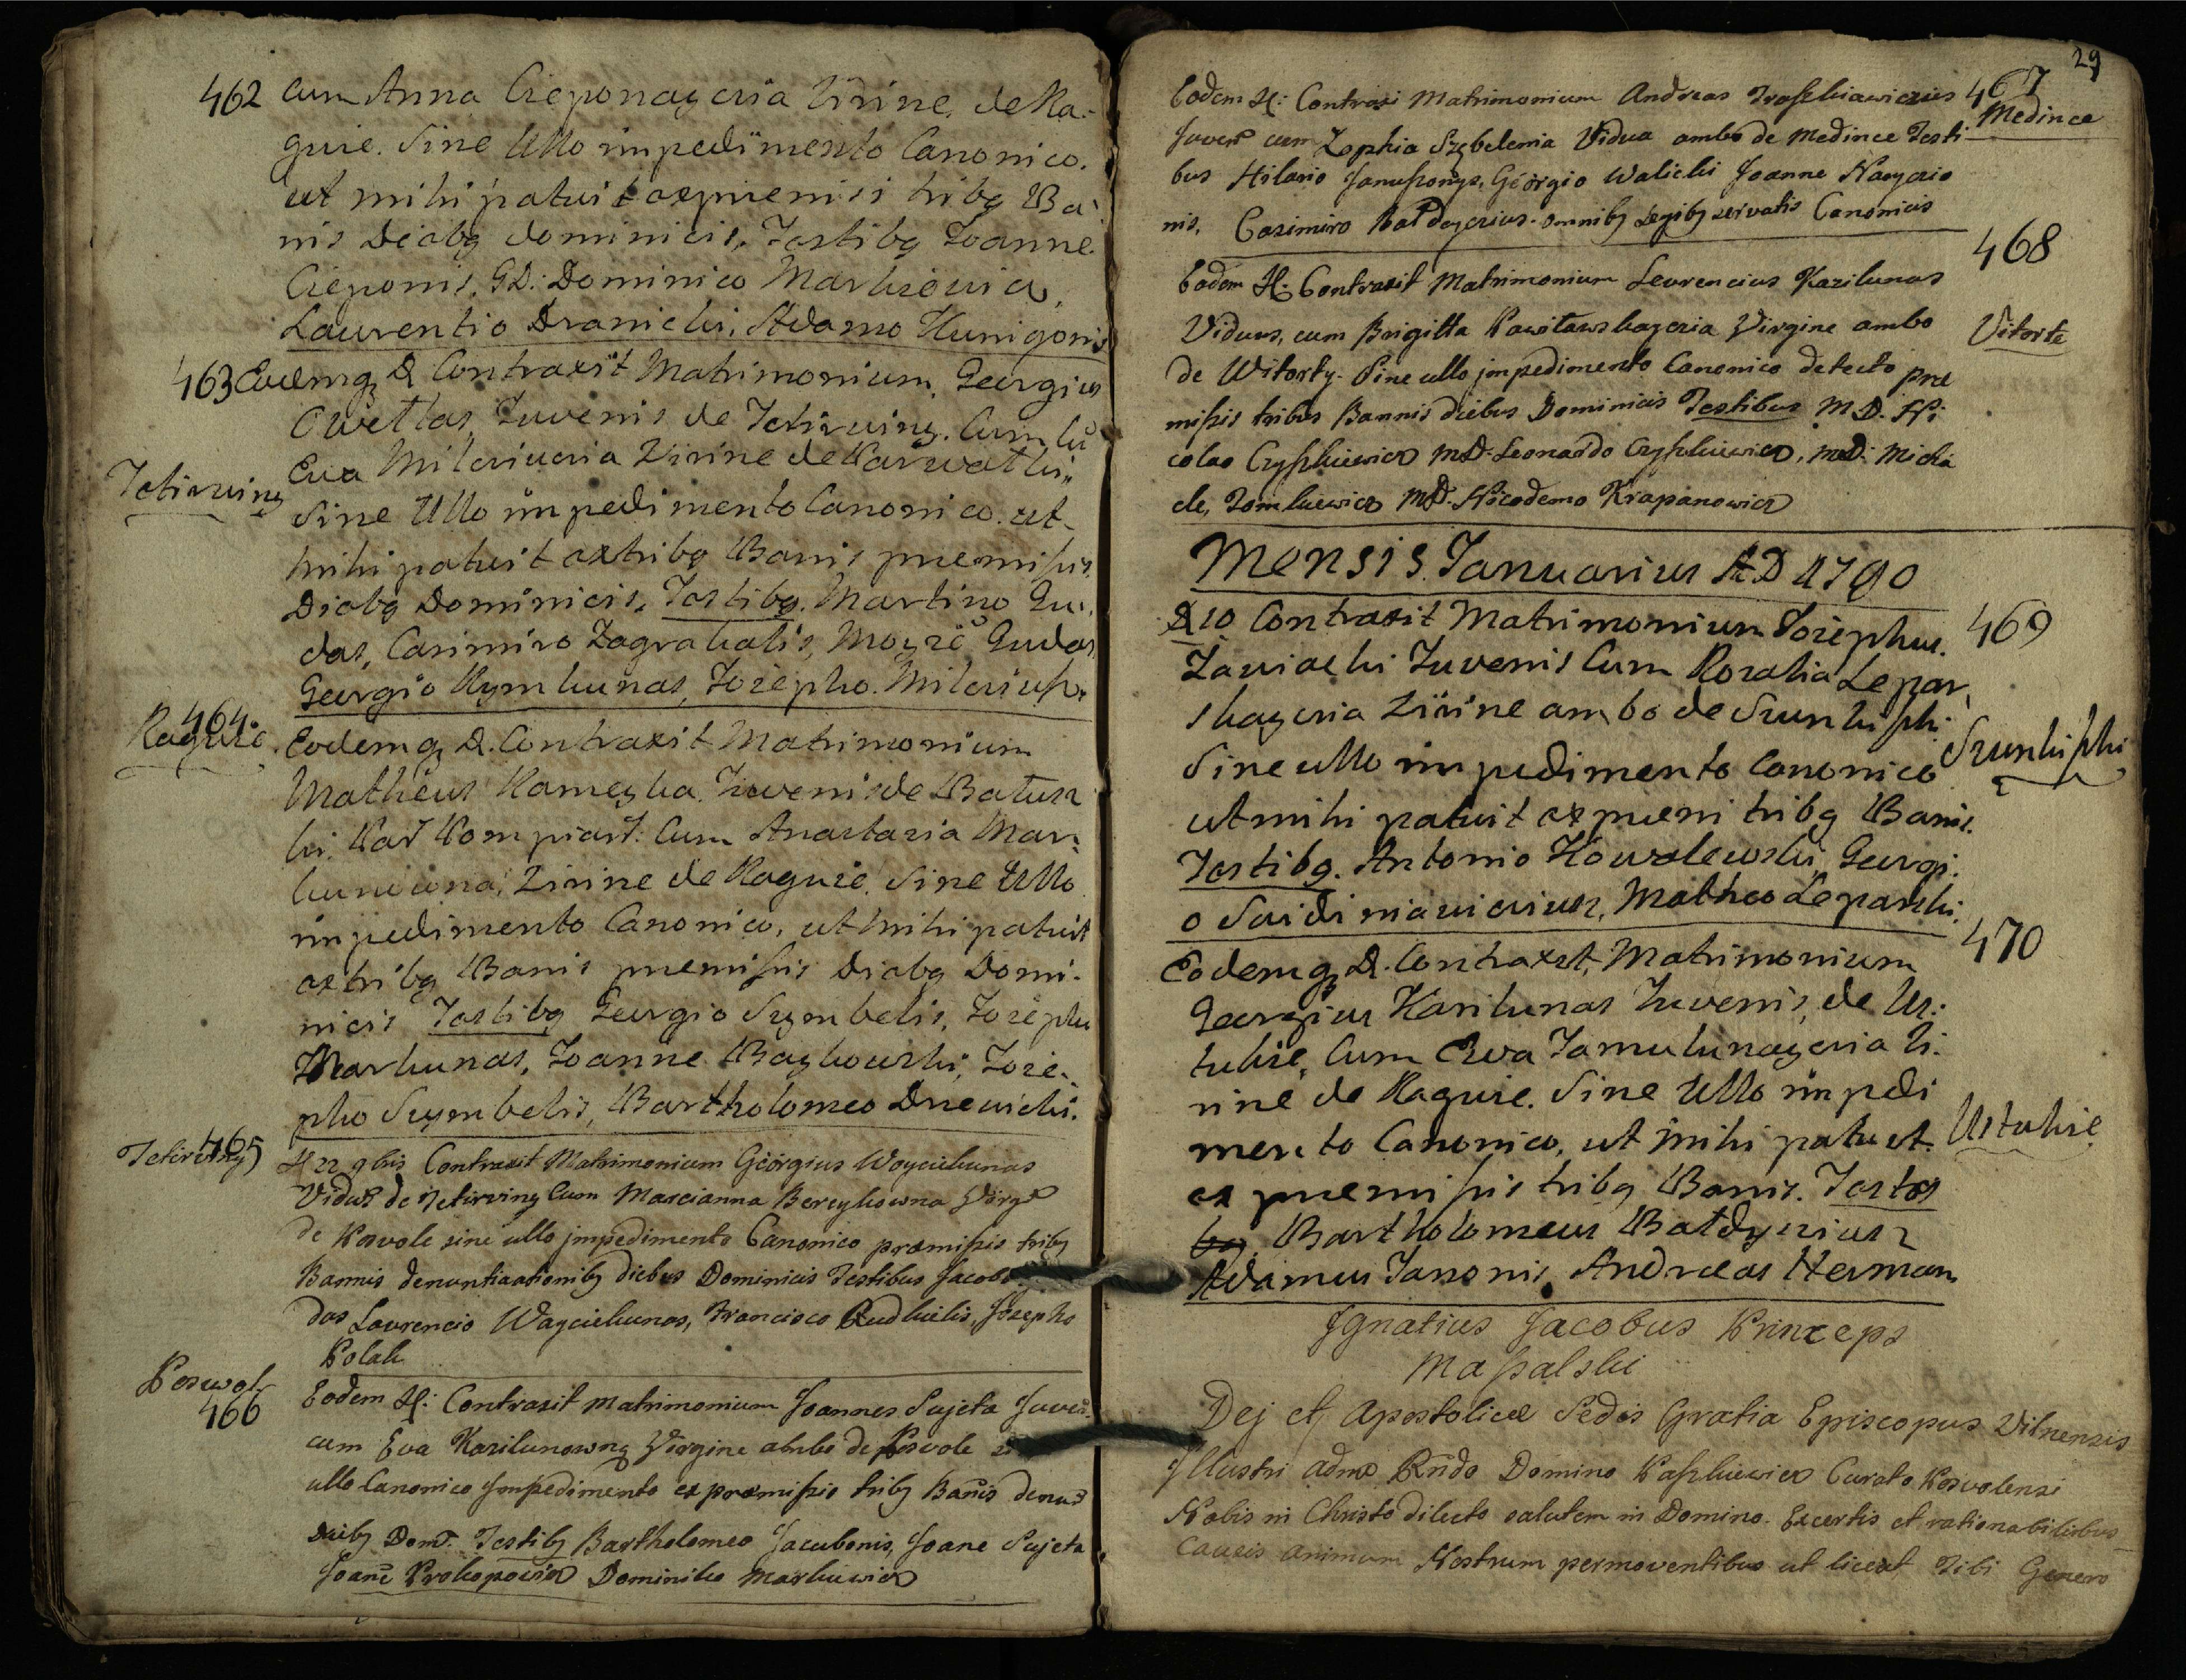 462 cum Anna Cieponayciia Virine. de Ra-
guie. Sine Ullo impedimento Canonico.
ut mihi patuit ex premisi tribq Ba-
nis Diebq dominicis. Testibq Joanne
Cieponis, GD: Dominico Markiewicz,
Laurentio Dranicki, Adamo Kunigonis
463 Eodemq D Contraxit Matrimonium. Georgius
Owetlas, Juvenis de Tetirwiny. Cum
Eva Milasiucia Virine de Parwatki
Tetirwiny
Sine Ullo impedimento Canonico. ut
mihi patuit ex tribq Banis premissis
Diebq Dominicis. Testibq. Martino Gu-
das, Casimiro Zagrabalis, Moyze Gudas
Georgio Rymkunas, Josepho.
464
Raguie. Eodemq D. Contraxit Matrimonium
Matheus Rameyka. Juvenis de Batusz
ki. Par Pompiast: Cum Anastazia Mar-
kunowna, Virine de Raguie. Sine Ullo
impedimento Canonico, ut mihi patuit
ex tribq Banis premissis Diebq Domi-
nicis Testibq Georgio Szymbelis, Josepho
Markunas, Joanne Baykowski, Jose-
pho Szymbelis, Bartholomeo Drewicki.
Tetirwiny 465
H 22 9bris Contraxit Matrimonium Georgius Woyciekunas
Viduus de Tetirwiny Cum Marcianna Bereykowna Virge
de Posvole sine ullo jmpedimento Canonico praemissis tribq
Bannis denuntiationibq diebus Dominicis Testibus Jacobo
das Laurencio Wayciekunas, Francisco Rudkielis, Josepho
Polak
Poswol
466
Eodem H: Contraxit Matrimonium Joannes Pujeta Juven
cum Eva Kazilunowna Virgine ambo de Posvole
ullo Canonico Jmpedimento ex praemissis tribq Banis denus
Diebq Dom. Testibq Bartholomeo Jacubonis, Joane Pujeta
Joane Prokopowicz Dominiko Markiewicz
29
Eodem H: Contraxi Matrimonium Andreas Traszkiawiczius 467
Medince
Juven cum Zophia Szybelenia Vidua ambo de Medince Testi-
bus Hilario Januszonys, Georgio Walicki Joanne Naryczio
nis, Casimiro Bałdyczius. omnibq Legibq servatis Canonicis
468
Eodem H. Contraxit Matrimonium Leurencius Kazilunas
Viduus, cum Brigitta Pawitawskayczia Virgine ambo
Vitorte
de Witorty. Sine ullo jmpedimento Canonico detecto pre
missis tribus Bannis diebus Dominicis Testibus M. D. Ni
colao Czyszkiewicz MD. Leonardo Czyszkiewicz, MD. Micha
ele, Tomkiewicz MD. Nicodemo Krapanowicz
Mensis. Januarius AD 1790
D 10 Contraxit Matrimonium Josephus. 469
Zawiacki Juvenis Cum Rozalia Lepar
skayciia Virine ambo de Szunkiszki
Szunkiszki
Sine ullo impedimento Canonico
ut mihi patuit ex premi tribq Banis.
Testibq. Antonio Kowalewski, Georgi-
o Swidiniawiciusz, Matheo Leparski.
470
Eodemq D. Contraxt, Matrimonium
Georgius Kazilunas Juvenis, de Us-
tukie, Cum Ewa Jamulunayciia Vi-
rine de Raguie. Sine Ullo impedi
mento Canonico, ut mihi patuit.
Ustukie
ex premissis tribq Banis. Testes
Bartholomeus Bałdyciusz
Adamus Janonis, Andreas Herman
Jgnatius Jacobus Princeps
Massalski
Dej et Apostolicae Sedis Gratia Episcopus Vilnensis
Jllustri adm Rndo Domino Paszkiewicz Curato Posvolensi
Nobis in Christo dilecto salutem in Domino. Excertis et rationabilibus
Causis animum Nostrum permoventibus ut liceat Tibi Genero